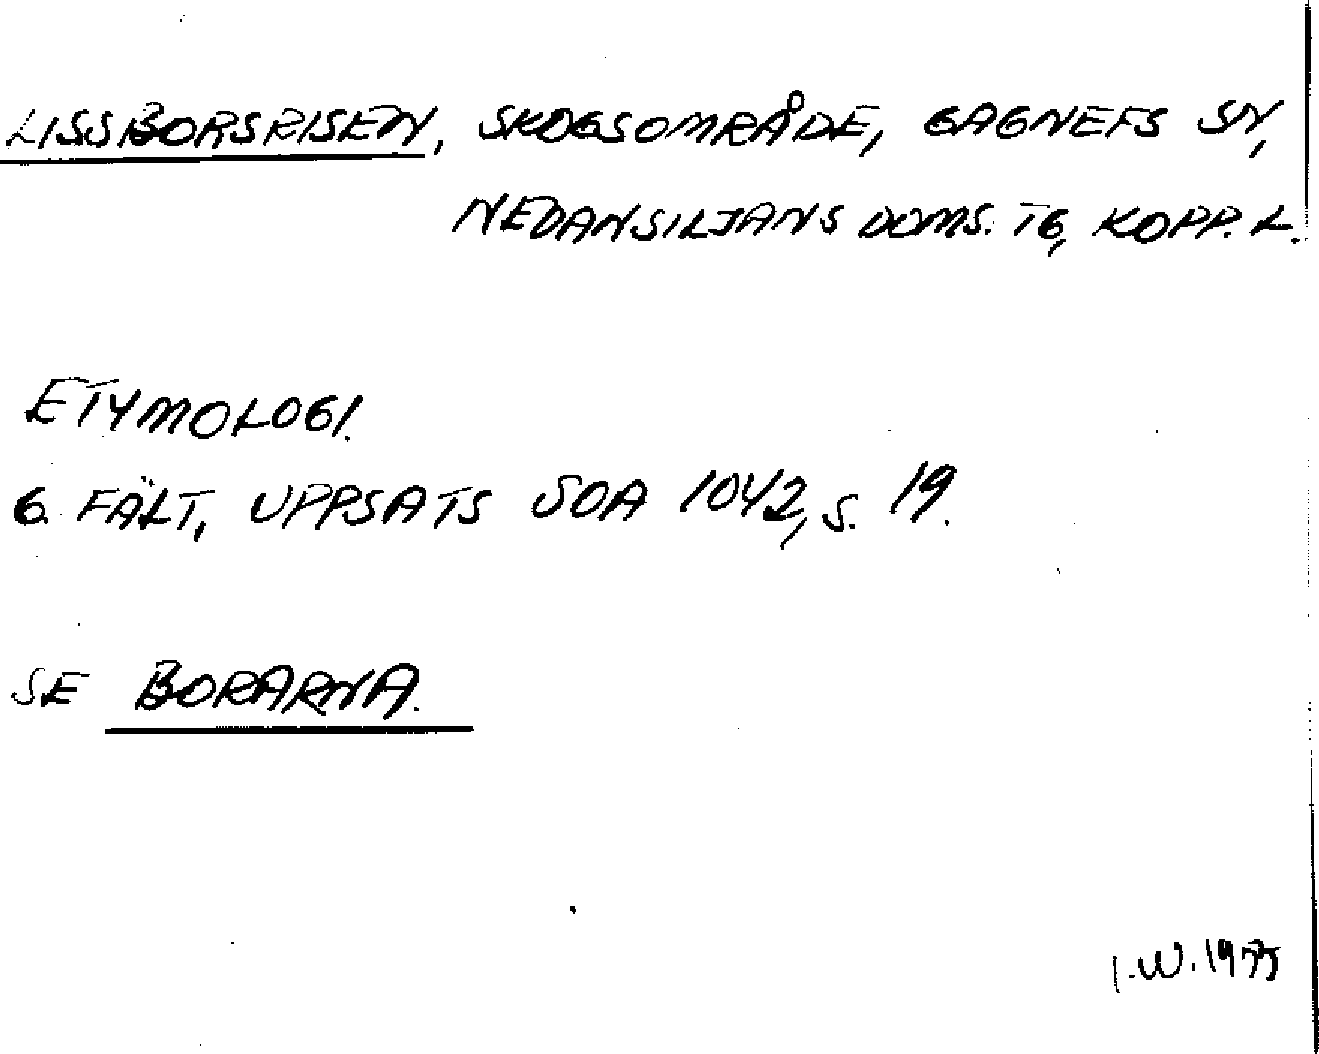 LISSBORSRISEN, SKOGSOMRÅDE, GAGNEFS SN,
NEDANSILJANS DOMS. TG, KOPP. L.
ETYMOLOGI.
G. FÄLT, UPPSATS SOA 1042, S. 19.
SE BORARNA.
I.W. 1975